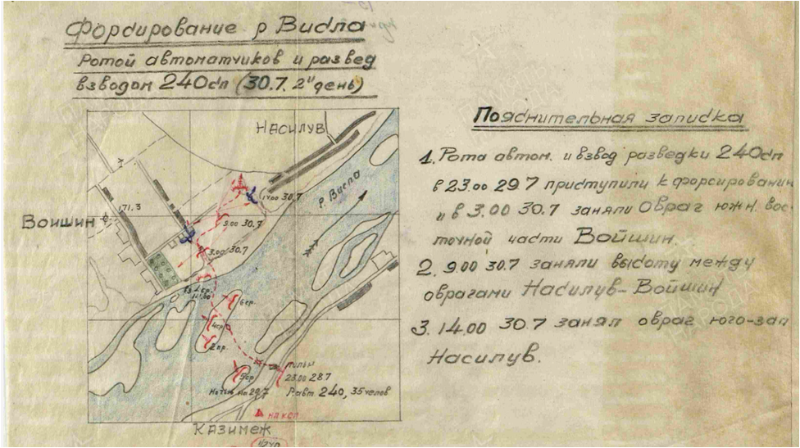 Форсирование р Висла
Ротой автоматчиков и развед
взводом 240сп (30.7. 2й день)
Пояснительная записка
1. Рота автом. и взвод разведки 240сп
в 23.00 29.7 приступили к форсированию
и в 3.00 30.7 заняли Овраг южн. вос-
точной части Войшин.
2. 9.00 30.7 заняли высоту между
оврагами Насилув-Войшин
3. 14.00 30.7 занял овраг юго-зап
Насилув.
НАСИЛУВ
р Висла
171.3
14.00 30.7
Войшин
9.00 30.7
3.00 30.7
6ср.
4ср.
2ср.
9ср
тылы
23.00 28.7
Разв 240, 35 челов
КАЗИМЕЖ